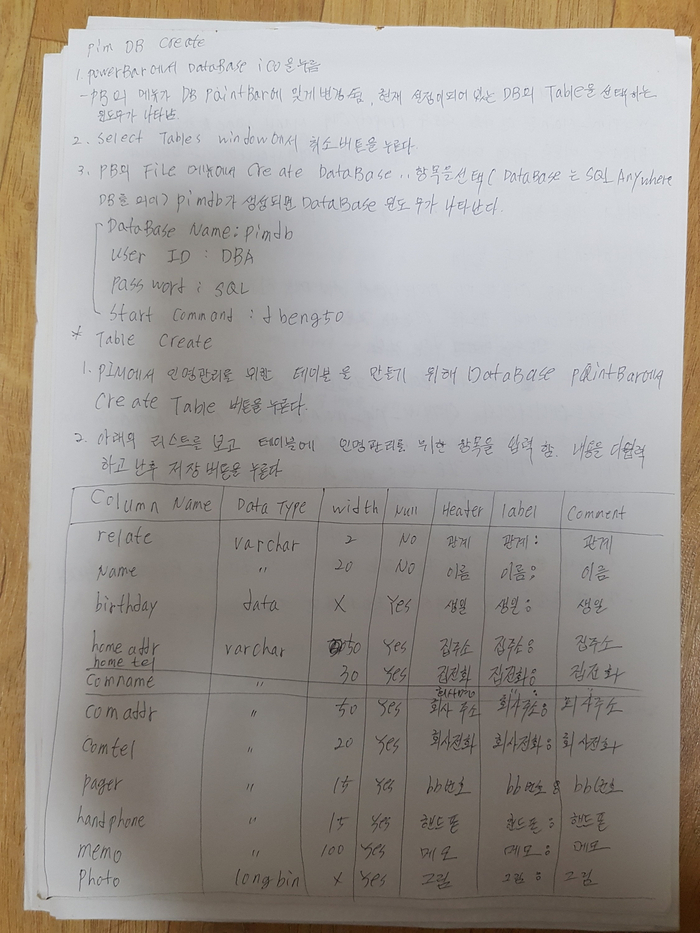 pim DB Create
1. powerBar에서 DataBase ico을 누름
- PB의 메뉴가 DB PaintBar에 맞게 변경됨, 현재 설정이 되어 있는 DB의 Table을 선택하는
윈도우가 나타난.
2. Select Tables window에서 취소버튼을 누른다.
3. PB의 File 메뉴에서 Create DataBase... 항목을 선택( DataBase는 SQL Anywhere
DB를 의미) pimdb가 생성되면 DataBase 윈도우가 나타난다.
DataBase Name: pimdb
User ID : DBA
password : SQL
Start Command : dbeng50
* Table Create
1. PIM에서 인명관리를 위한 테이블을 만들기 위해 DataBase paintBar에서
Create Table 버튼을 누른다.
2. 아래의 리스트를 보고 테이블에 인명관리를 위한 항목을 입력 함. 내용을 다입력
하고 난후 저장 버튼을 누른다
Column Name Data Type width Null Header label Comment
relate varchar 2 No 관계 관계: 관계
Name " 20 No 이름 이름: 이름
birthday data X Yes 생일 생일: 생일
home addr varchar 50 Yes 집주소 집주소: 집주소
home tel
comname " 30 Yes 집전화 집전화: 집전화
com addr " 50 Yes 회사 주소 회사주소: 회사주소
Comtel " 20 Yes 회사전화 회사전화: 회사전화
pager " 15 Yes bb번호 bb번호: bb번호
handphone " 15 Yes 핸드폰 핸드폰: 핸드폰
memo " 100 Yes 메모 메모: 메모
Photo longbin X Yes 그림 그림: 그림